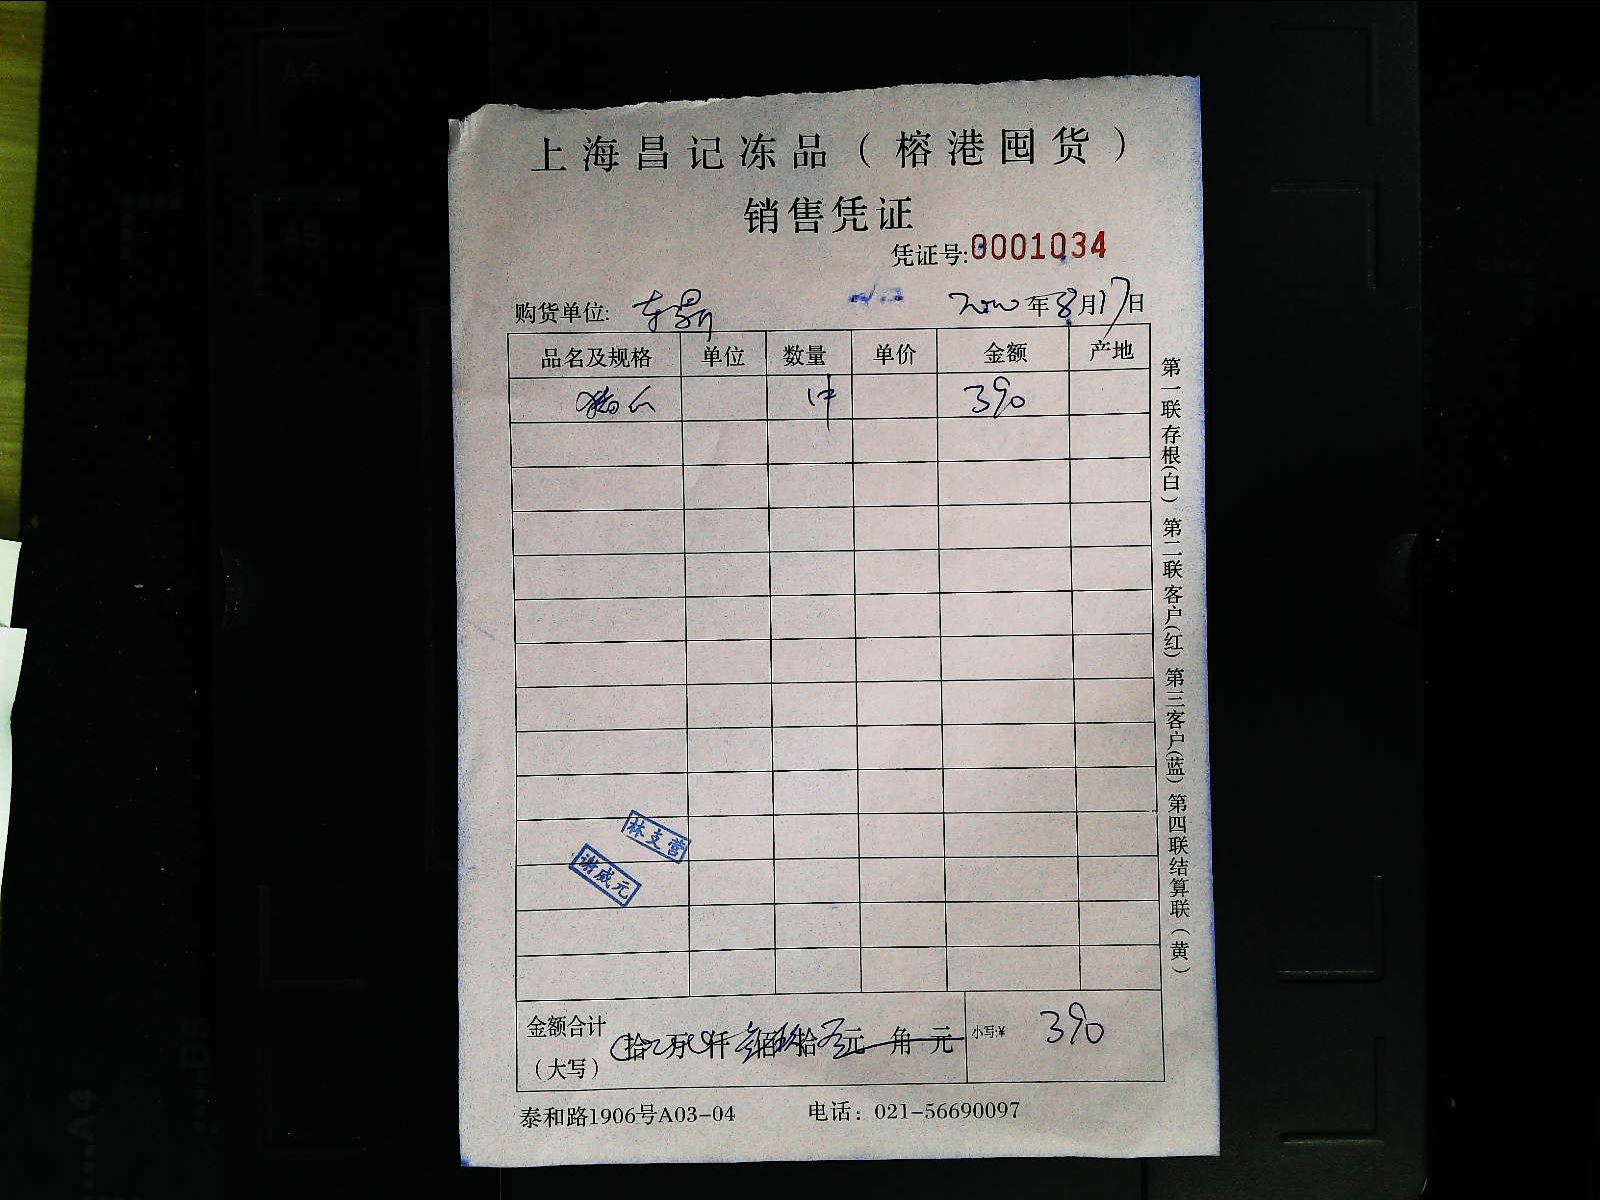 上海昌记冻品（榕港囤货）
销售凭证
凭证号:0001034
购货单位: 东鼎 年8月17日
品名及规格 单位 数量 单价 金额 产地
1件 390
林支营
谢成元
金额合计 拾 万 仟 佰 拾 元 角 元 小写:¥ 390
（大写）
泰和路1906号A03-04 电话：021-56690097
第一联存根(白) 第二联客户(红) 第三客户(蓝) 第四联结算联(黄)